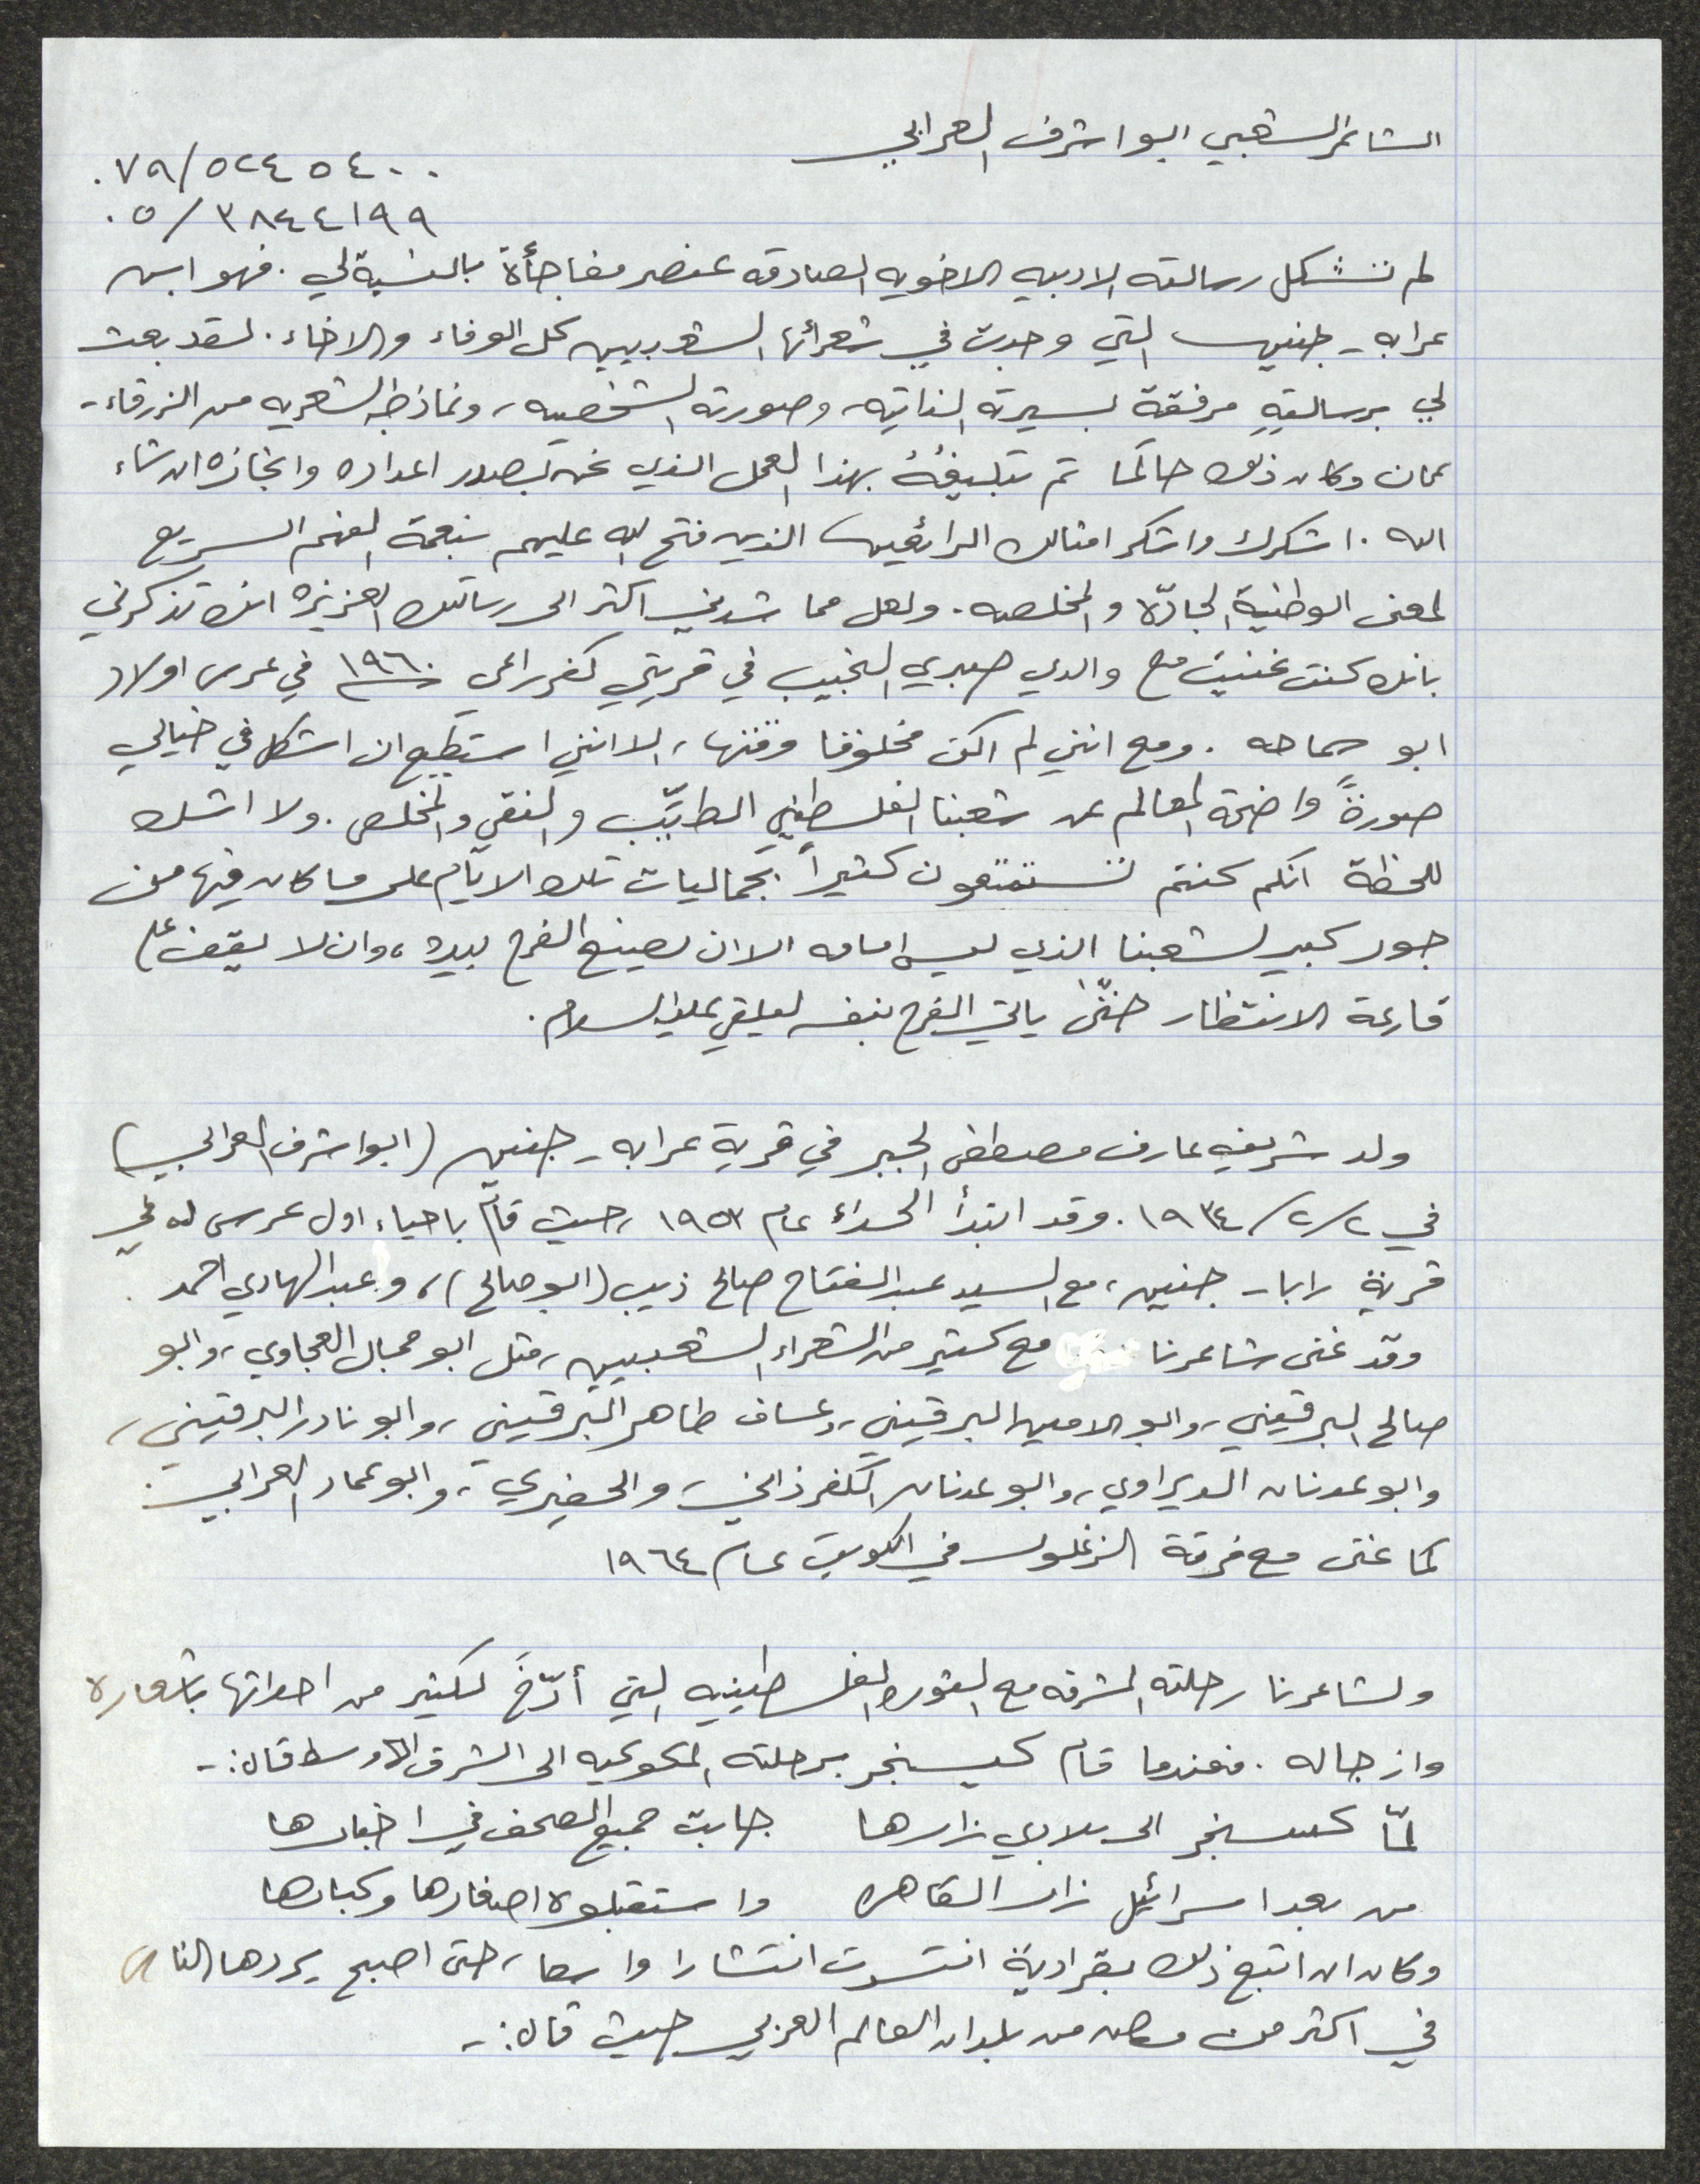 الشاعر الشعبي ابو اشرف العرابي
٠٧٩/٥٢٤٥٤٠٠
٠٥/٣٨٤٤١٩٩
لم تشكل رسالته الادبيه الاخويه الصادقه عنصر مفاجأة بالنسبة لي. فهو ابن
عرابه - جنين التي وجدت في شعرائها الشعبيين كل الوفاء والاخاء. لقد بعث
لي برسالتهِ مرفقة بسيرته الذاتيه، وصورته الشخصيه، ونماذجه الشعريه من الزرقاء -
عمان وكان ذلك حالما تم تبليغهُ بهذا العمل الذي نحن بصدد اعداده وانجازه ان شاء
الله. اشكرك واشكر امثالك الرائعين الذين فتح الله عليهم بنعمة الفهم السريع
لمعنى الوطنية الجادّة والمخلصه. ولعل مما شدني اكثر الى رسالتك العزيزه انك تذكرني
بانك كنت غنيت مع والدي صبري النجيب في قريتي كفرراعي ١٩٦٠ في عرس اولاد
ابو سماحه. ومع انني لم اكن مخلوقا وقتها، الا انني استطيع ان اشكل في خيالي
صورةً واضحة المعالم عن شعبنا الفلسطيني الطيّب والنقي والمخلص. ولا اشك
للحظة انكم كنتم تستمتعون كثيراً بجماليات تلك الايّام على ما كان فيها من
جور كبير لشعبنا الذي ليس امامه الا ان يصنع الفرح بيده، وان لا يقف على
قارعة الانتظار حتّى ياتي الفرح بنفسه ليلقي عليه السلام.
ولد شريف عارف مصطفى الجبر في قرية عرابه - جنين (ابو اشرف العرابي)
في ٢/٢/١٩٣٤. وقد ابتدأ الحداء عام ١٩٥٣، حيث قام باحياء اول عرس له في
قرية رابا - جنين، مع السيد عبد الفتاح صالح ذيب (ابو صالح)، وعبد الهادي احمد.
وقد غنى شاعرنا مع كثير من الشعراء الشعبيين، مثل ابو جمال العجاوي، وابو
صالح البرقيني، وابو الامين البرقيني، وعساف طاهر البرقيني، وابو نادر البرقيني،
وابو عدنان الديراوي، وابو عدنان الكفرذاني، والحفيري، وابو عماد العرابي.
كما غنى مع فرقة الزغلول في الكويت عام ١٩٦٤
ولشاعرنا رحلته المشرفه مع الثوره الفلسطينيه التي أرّخَ لكثير من احداثها باشعاره
وازجاله. فعندما قام كيسنجر برحلته المكوكيه الى الشرق الاوسط قال: -
لمّا كيسنجر الى بلادي زارها    جابت جميع الصحف في اخبارها
من بعد اسرائيل زار القاهره    واستقبلوه اصغارها وكبارها
وكان ان اتبع ذلك بقرادية انتشرت انتشارا واسعا، حتى اصبح يرددها الناس
في اكثر من مكان من بلدان العالم العربي حيث قال: -